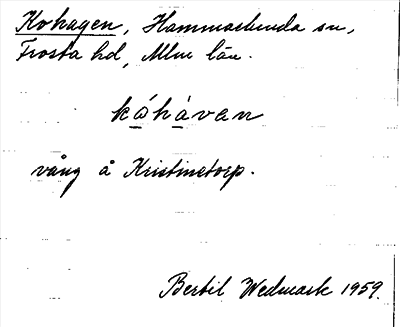 Kohagen, Hammarlunda sn,
Frosta hd, Mlm län.
kóhàvan
vång å Kristinetorp.
Bertil Wedmark 1959.